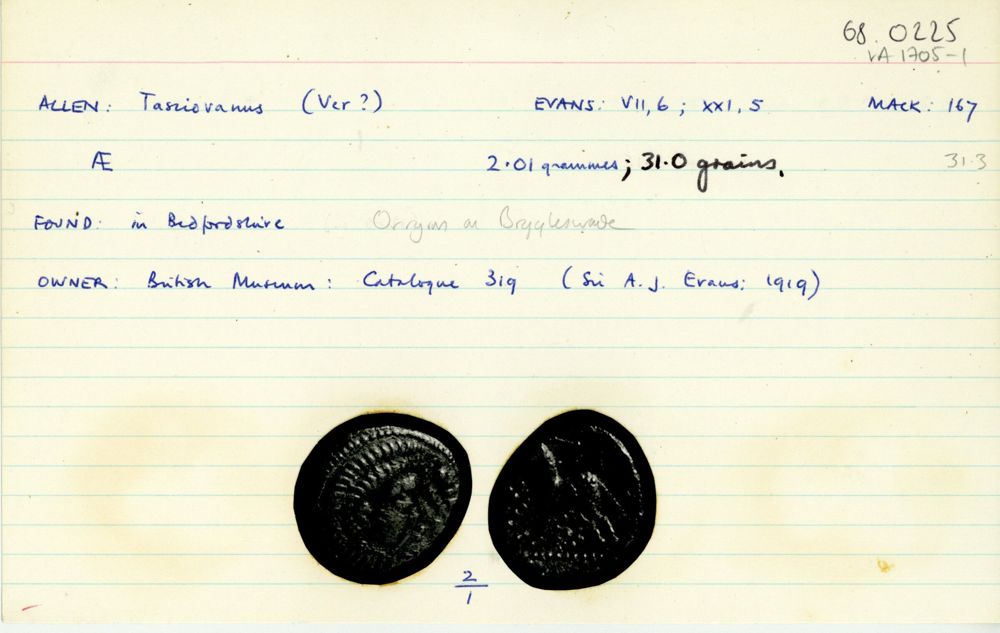 68.0225
VA 1705-1
ALLEN: Tasciovanus (Ver?) EVANS: VII, 6; XXI, 5 MACK: 167
Æ 2.01 grammes; 31.0 grains. 31.3
FOUND: in Bedfordshire
OWNER: British Museum: Catalogue 319 (Sir A. J. Evans: 1919)
2
1